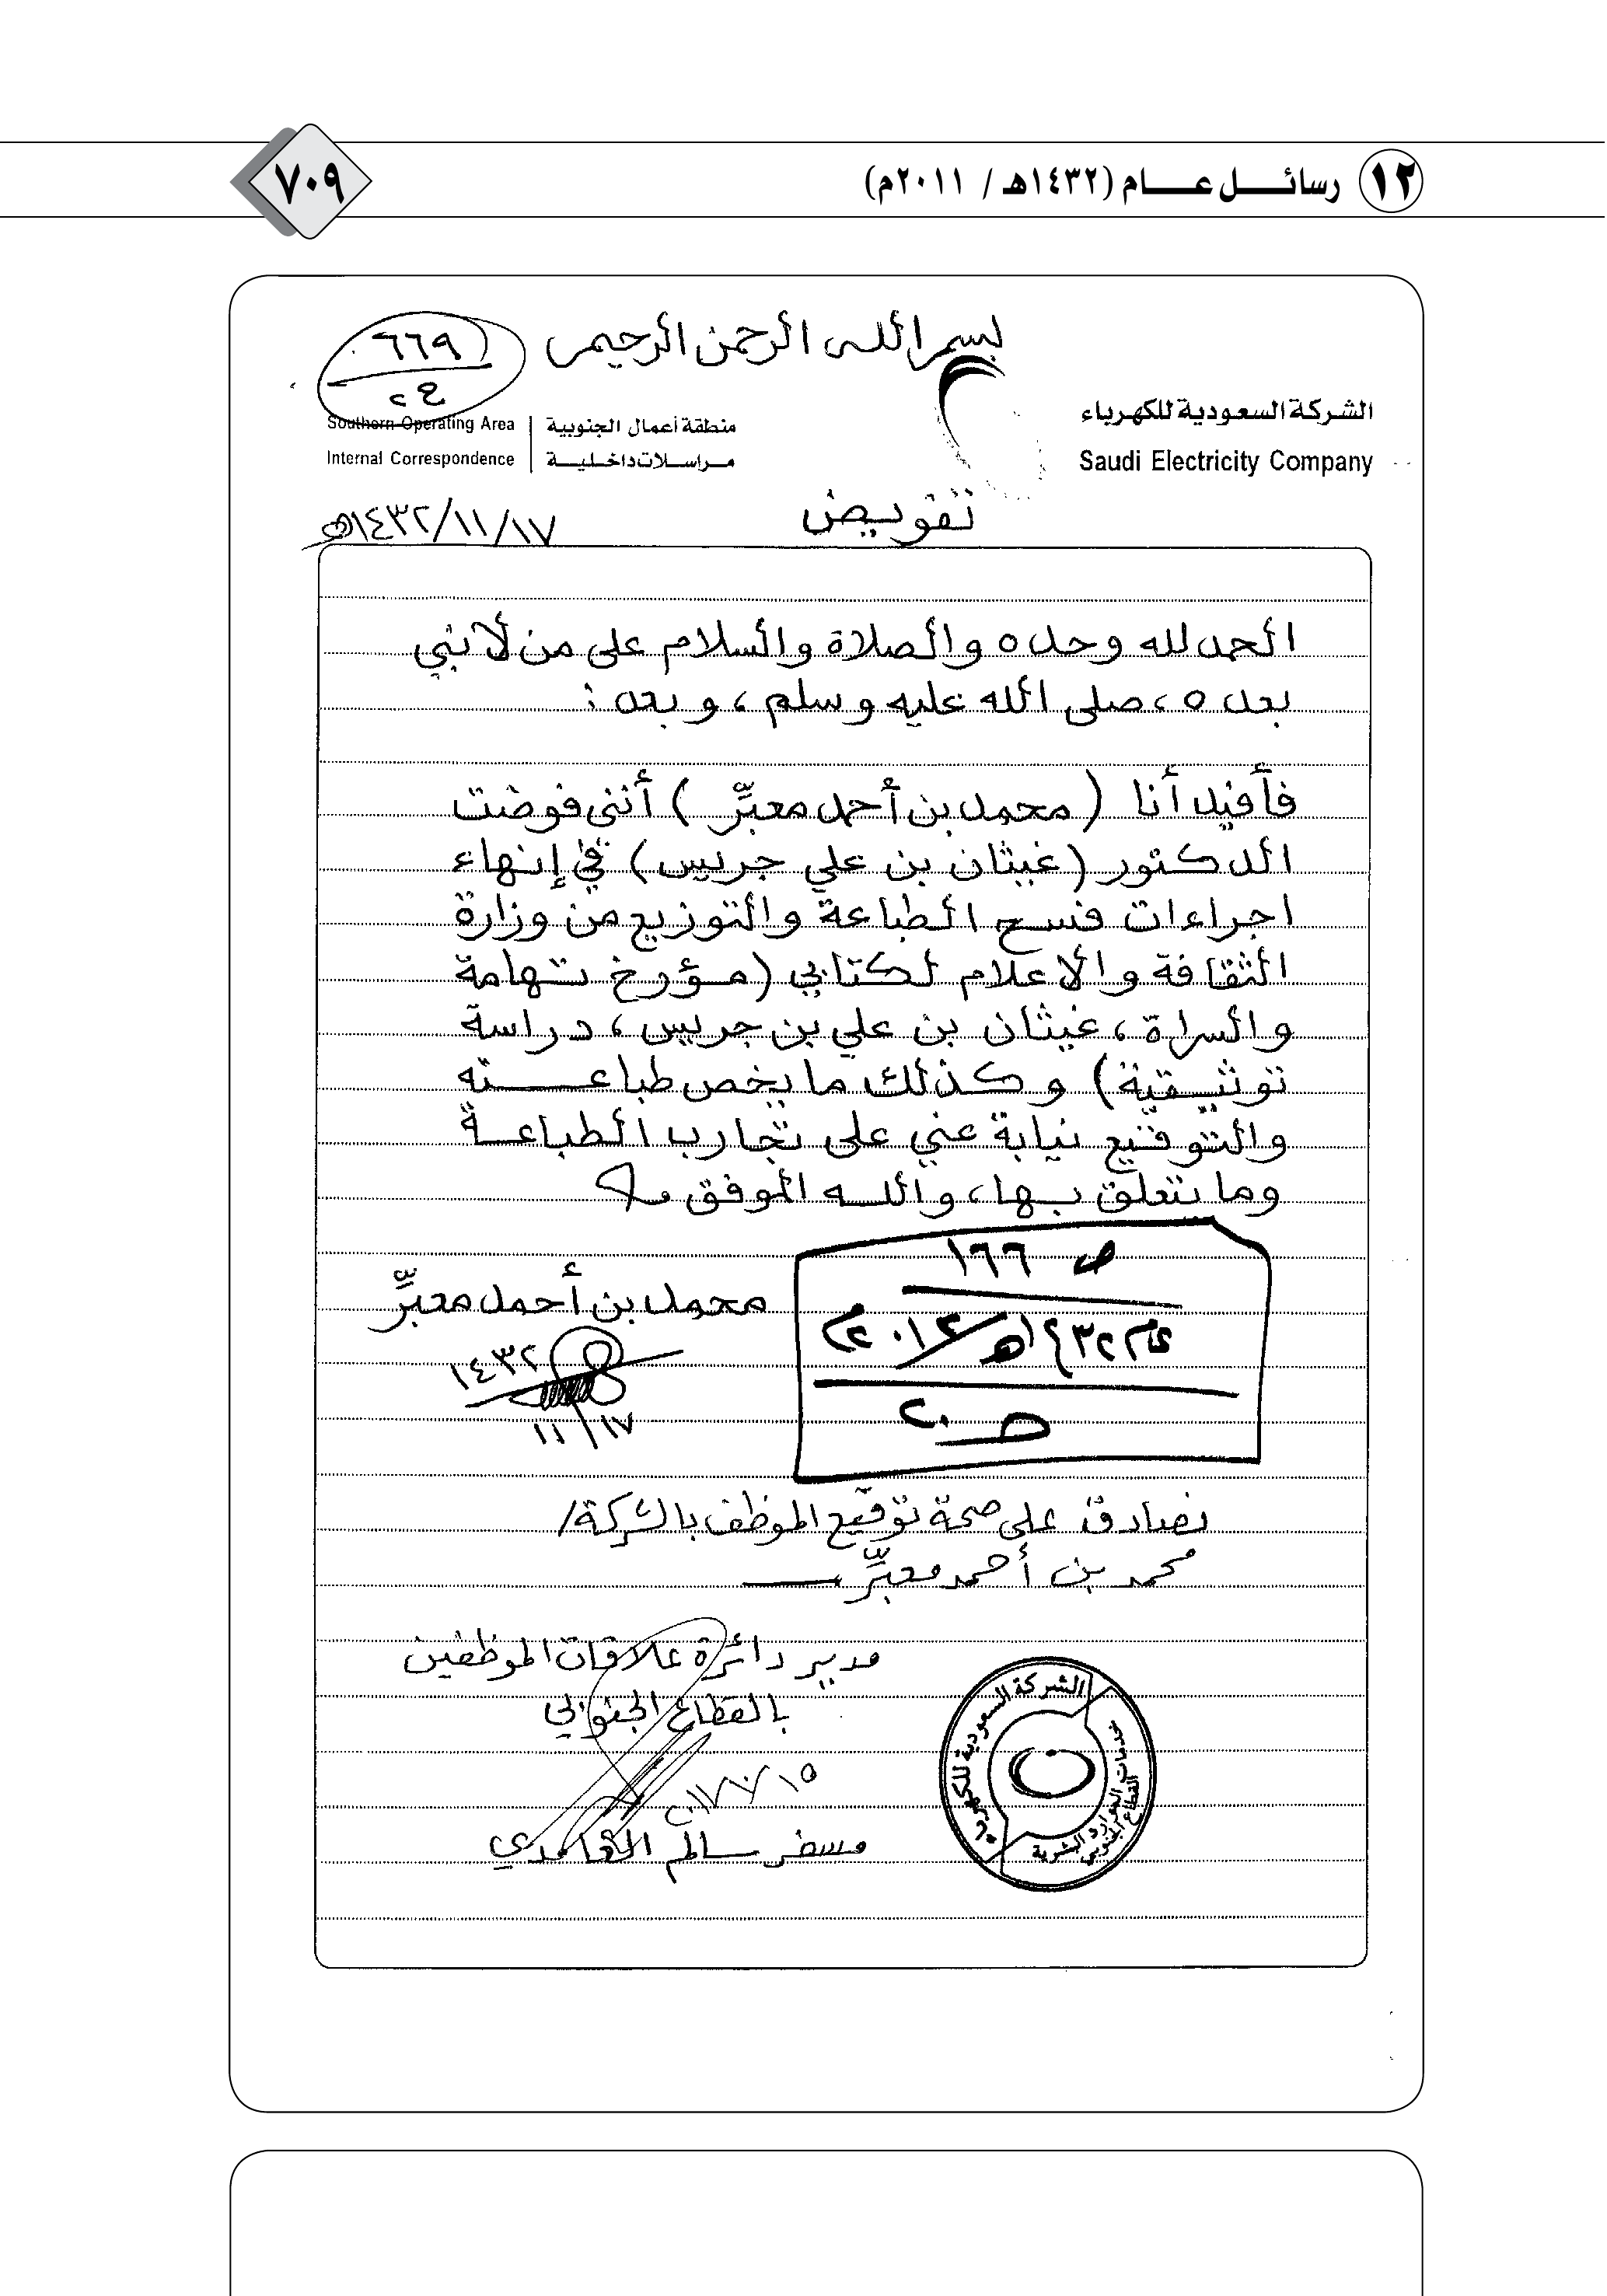 ١٢ رسائل عام (١٤٣٢هـ / ٢٠١١م)
٧٠٩
بسم الله الرحمن الرحيم
٦٦٩
الشركة السعودية للكهرباء
Saudi Electricity Company
منطقة أعمال الجنوبية
Southern Operating Area
مراسلات داخلية
Internal Correspondence
تفويض
١٤٣٢/١١/١٧هـ
الحمد لله وحده والصلاة والسلام على من لا نبي
بعده، صلى الله عليه وسلم، وبعد:
فأفيد أنا (محمد بن أحمد معبِّر) أنني فوضت
الدكتور (غيثان بن علي جريس) في إنهاء
اجراءات فسح الطباعة والتوزيع من وزارة
الثقافة والاعلام لكتابي (مؤرخ تهامة
والسراة، غيثان بن علي بن جريس، دراسة
توثيقية) وكذلك ما يخص طباعته
والتوقيع نيابة عني على تجارب الطباعة
وما يتعلق بها، والله الموفق
محمد بن أحمد معبِّر
١٤٣٢
١١/١٧
ص ١٦٦
نصادق على صحة توقيع الموظف بالشركة/
محمد بن أحمد معبِّر
مدير دائرة علاقات الموظفين
بالقطاع الجنوبي
مسفر سالم الغامدي
الشركة السعودية للكهرباء
خدمات الموارد البشرية
القطاع الجنوبي